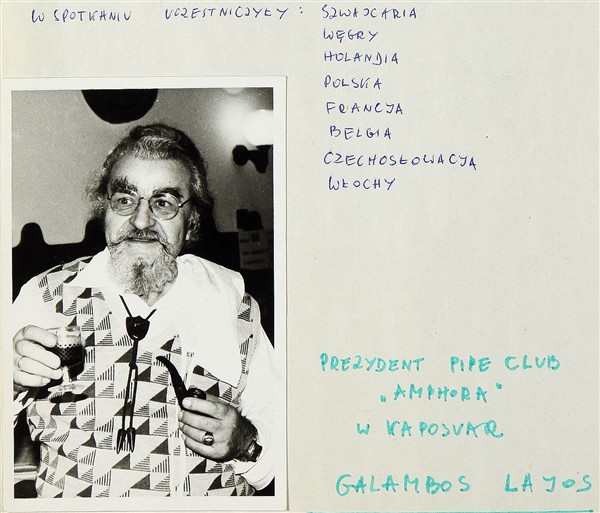 W SPOTKANIU UCZESTNICZYŁY: SZWAJCARIA
WĘGRY
HOLANDIA
POLSKA
FRANCJA
BELGIA
CZECHOSŁOWACJA
WŁOCHY
PREZYDENT PIPE CLUB
„AMPHORA"
W KAPOSVAR
GALAMBOS LAJOS